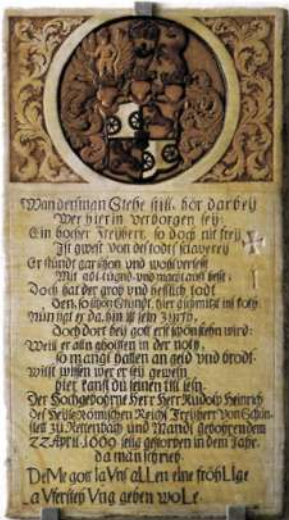 Wandersman Stehe still, hör darbey
Wer hierin verborgen sey:
Ein hocher Freyherr, so doch nit frey
Ist gwest von des todts sclaverey
Er stundt gar schön und wohl
Mit adl, tugnd, und macht aufs
Doch hat der grob und heslich todt
Den, so schön stundt, hier
Nun ligt er da, hin ist sein
doch dort bey gott erst schön stehn wird:
Weil er alln gholffen in der noth,
so mangl hatten an geld und brodt.
willst wissen wer er sey gewesn
hier kanst du seinen titl lesn.
Der Hochgebohrne Herr Herr Rudolf Heinrich
des Heilig Römischen Reichs Freyherr von
zu und Mandl gebohren dem
22 April 1609 selig gestorben in dem Jahr.
da man schrieb
DeMe gott la Vns aLLen eine fröhLIge
a Vferste Vng geben woLe.